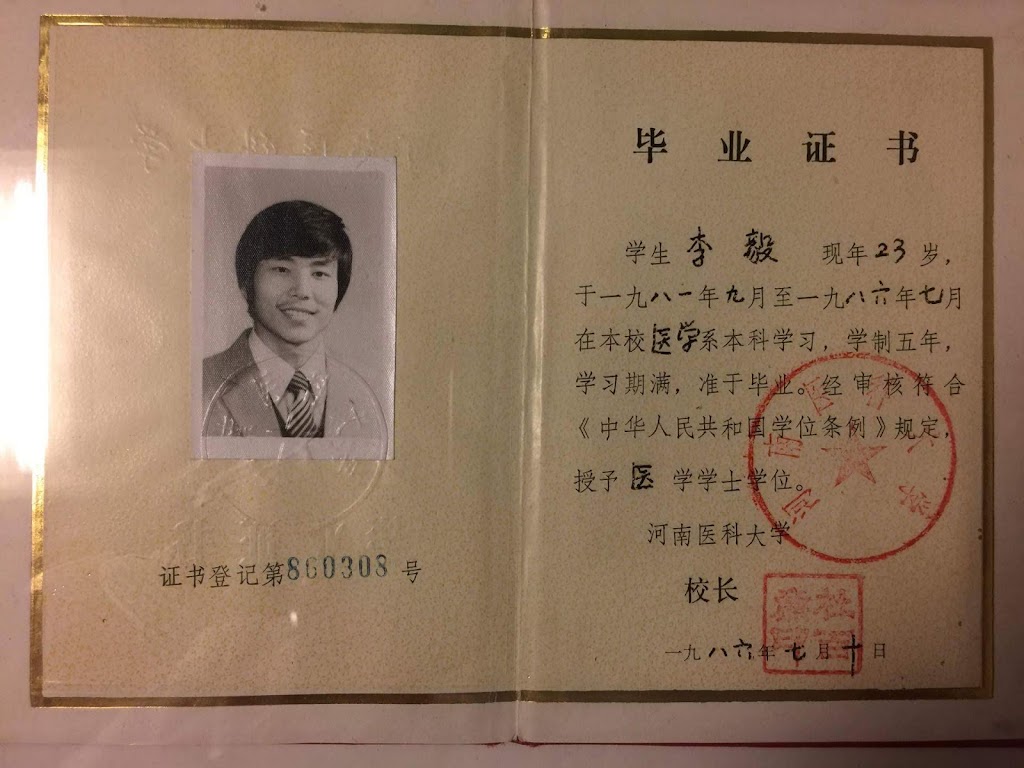 证书登记第860308号
毕业证书
学生 李毅 现年23岁，
于一九八一年九月至一九八六年七月
在本校医学系本科学习，学制五年，
学习期满，准于毕业。经审核符合
《中华人民共和国学位条例》规定，
授予医学学士学位。
河南医科大学
校长
一九八六年七月十日
河南医科大学